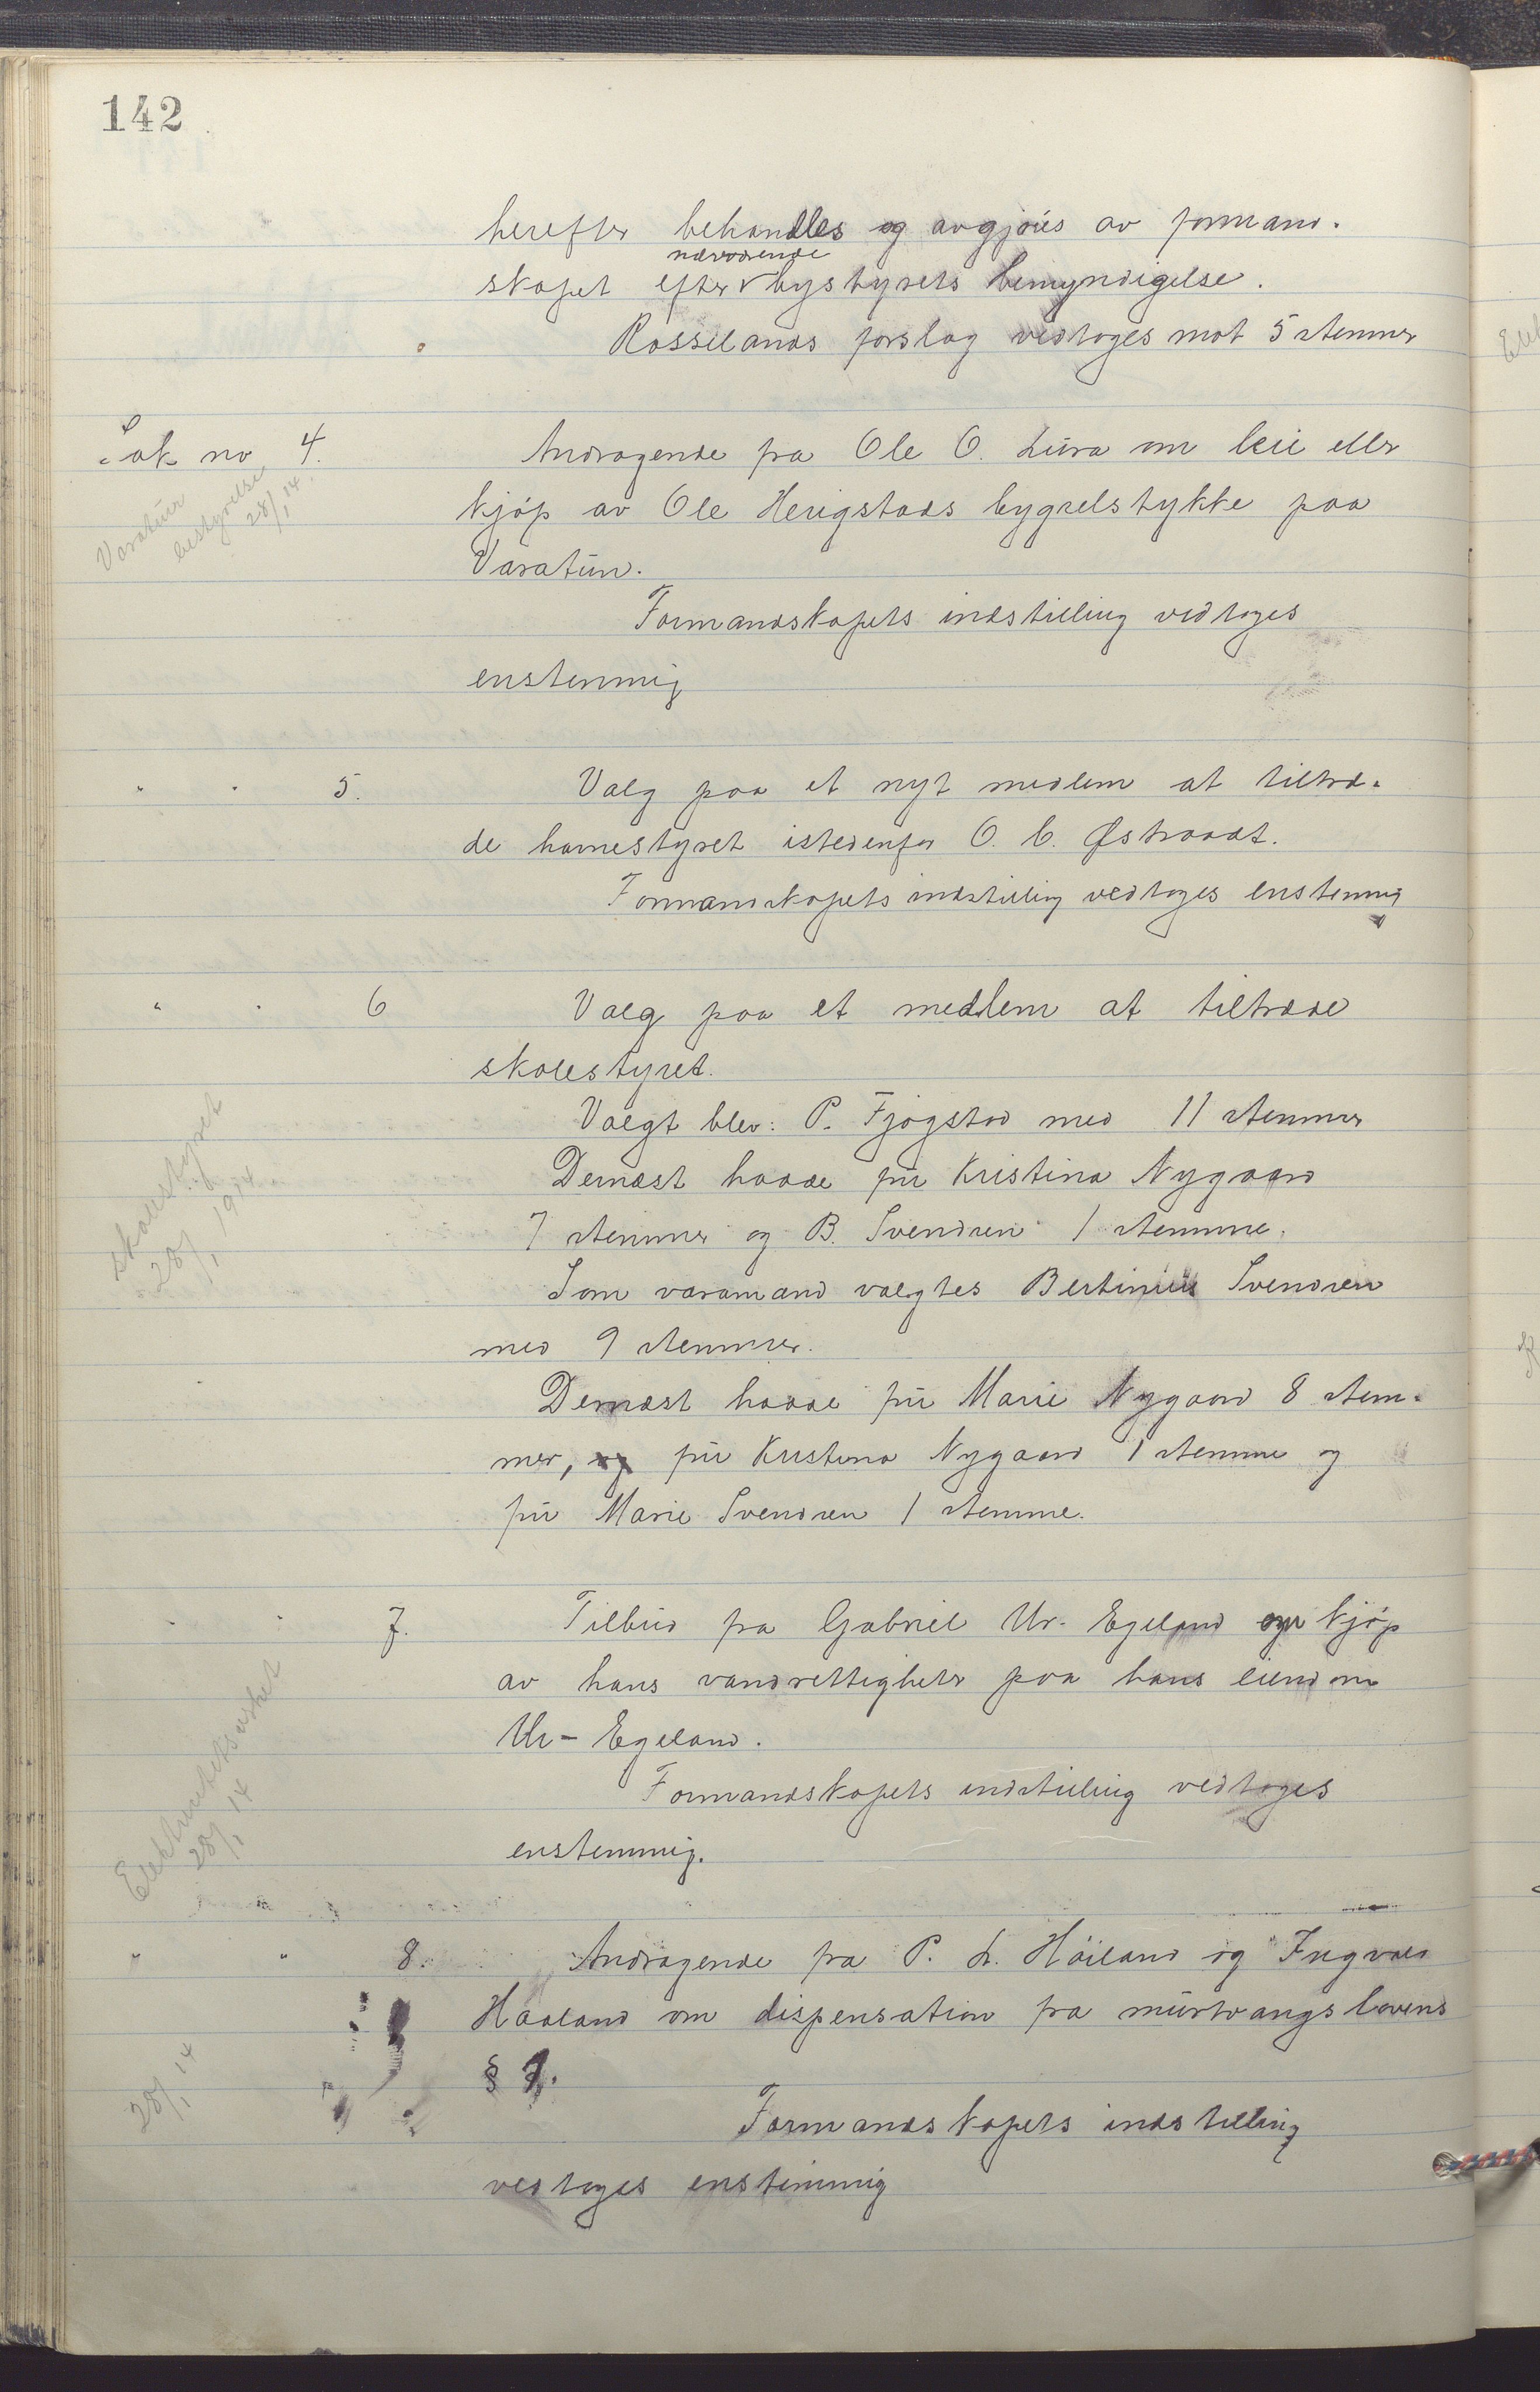 142
herefter behandles og avgjøres av formand-
nærværende
skapet efter bystyrets bemyndigelse.
Rosselands forslag vedtoges mot 5 stemmer
Sak no 4.
Varatun
bestyrelse
28/1 14.
Andragende fra Ole O. Lura om leie eller
kjøp av Ole Herigstads bygselstykke paa
Varatun.
Formandskapets indstilling vedtoges
enstemmig
" " 5.
Valg paa et nyt medlem at tiltræ-
de havnestyret istedenfor O. C. Østraadt.
Formandskapets indstilling vedtoges enstemmig
" " 6
Valg paa et medlem at tiltræde
skolestyret.
Skolestyret
28/1 1914.
Valgt blev: P. Fjogstad med 11 stemmer
Dernæst hadde fru Kristina Nygaard
7 stemmer og B. Svendsen 1 stemme.
Som varamand valgtes Bertinius Svendsen
med 9 stemmer.
Dernæst hadde fru Marie Nygaard 8 stem-
mer, og fru Kristina Nygaard 1 stemme og
fru Marie Svendsen 1 stemme.
" " 7.
Tilbud fra Gabriel Ur-Egeland om kjøp
av hans vandrettigheter paa hans eiendom
Ur-Egeland.
Elektricitetsverket
28/1 14
Formandskapets indstilling vedtoges
enstemmig.
" " 8.
Andragende fra P. L. Høiland og Ingvald
Haaland om dispensation fra murtvangslovens
§ 7.
28/1 14
Formandskapets indstilling
vedtoges enstemmig